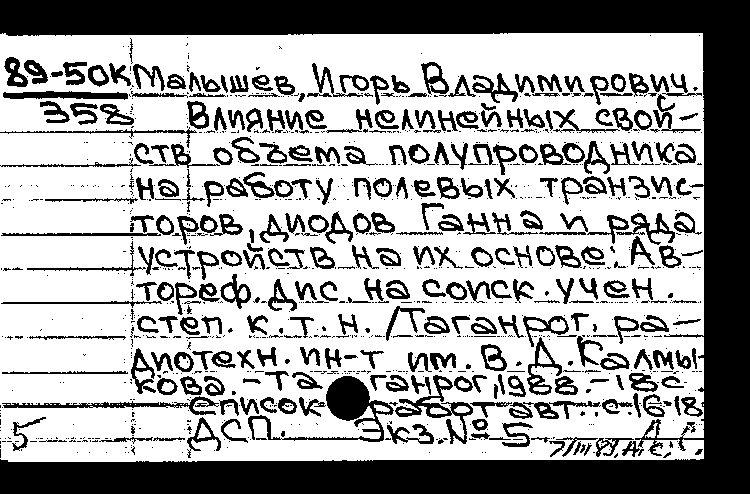 89-50К Малышев, Игорь Владимирович.
358 Влияние нелинейных свой-
ств объема полупроводника
на работу полевых транзис-
торов, диодов Ганна и ряда
устройств на их основе: Ав-
тореф. дис. на соиск. учен.
степ. к.т.н. /Таганрог. ра-
диотехн. ин-т им. В.Д. Калмы-
кова. - Таганрог, 1988. - 18 с.
Список работ авт.: с. 16-18
5 ДСП. Экз. № 5
7/III 89,